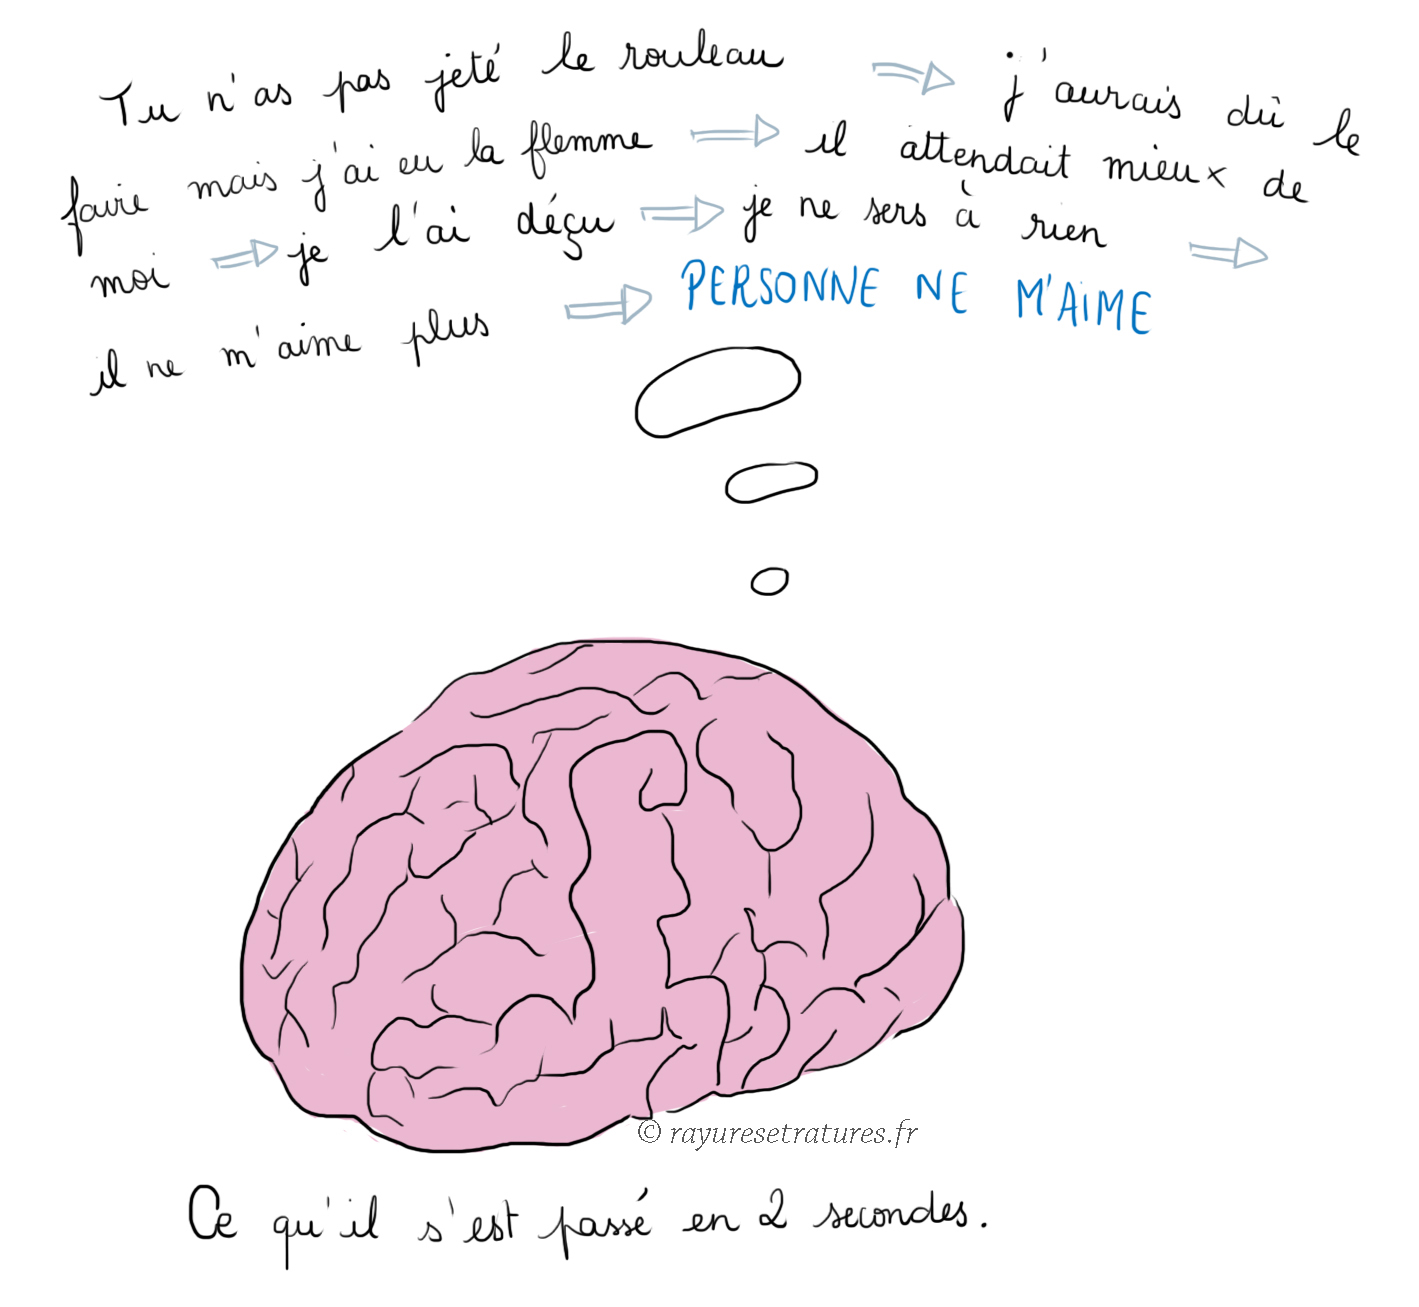 Tu n'as pas jeté le rouleau ⇒ j'aurais dû le
faire mais j'ai eu la flemme ⇒ il attendait mieux de
moi ⇒ je l'ai déçu ⇒ je ne sers à rien ⇒
il ne m'aime plus ⇒ PERSONNE NE M'AIME
© rayuresetratures.fr
Ce qu'il s'est passé en 2 secondes.